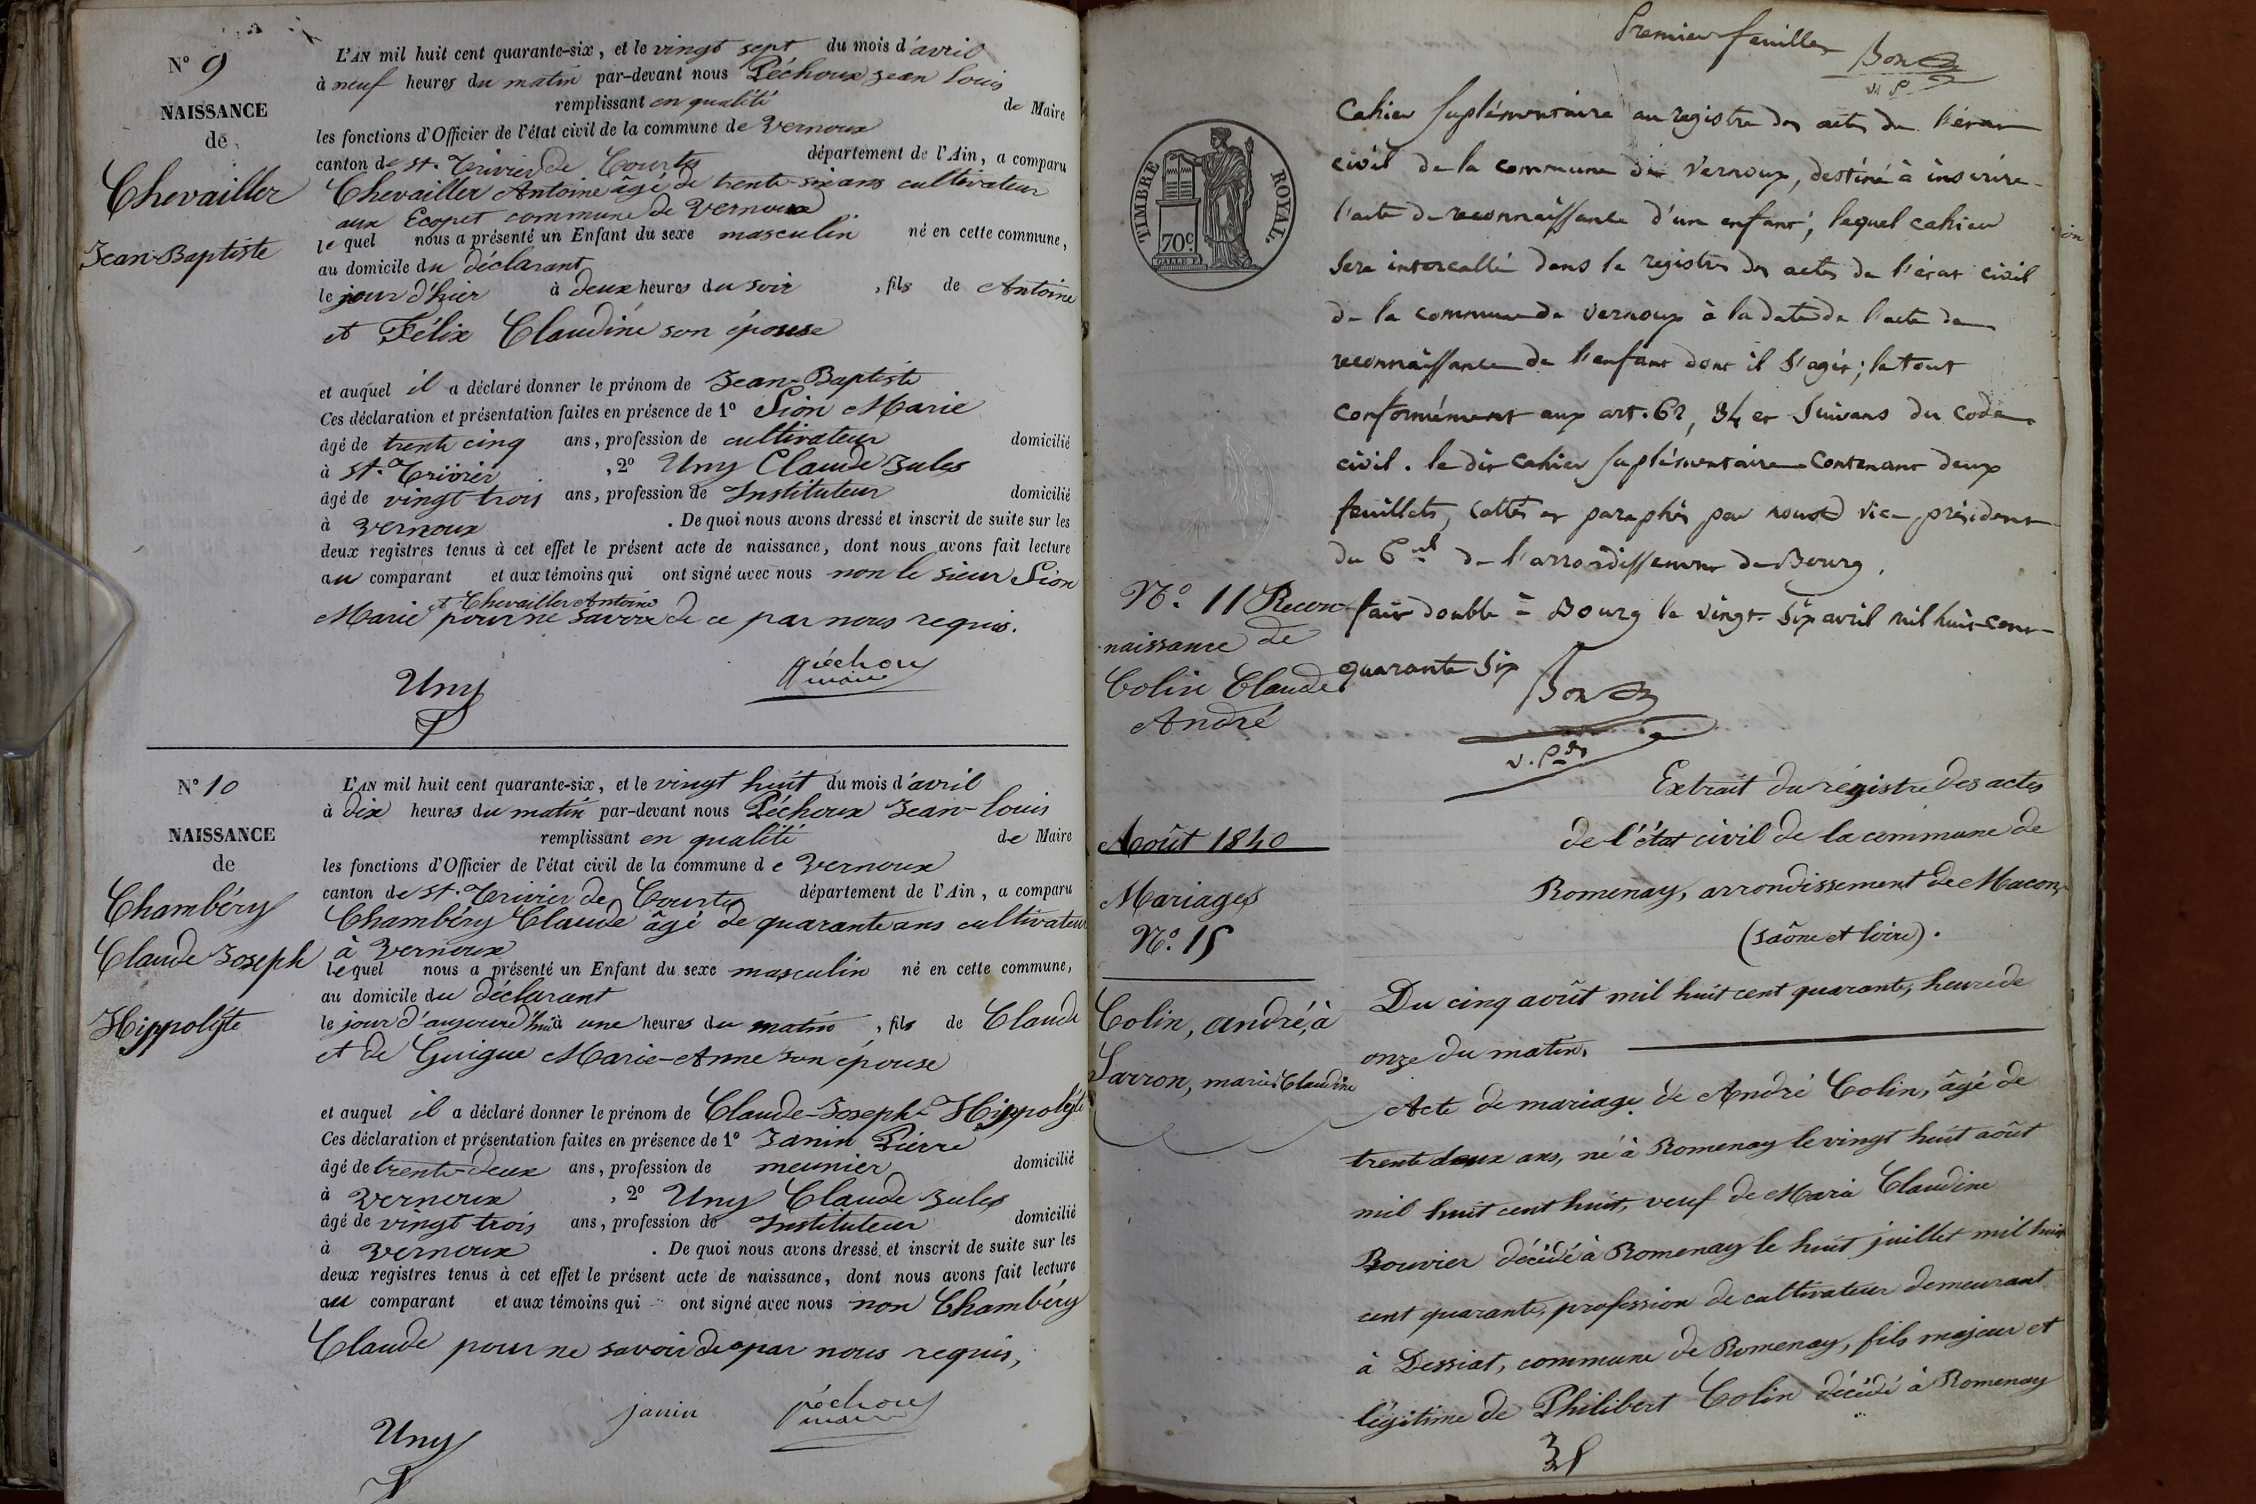 N° 9
NAISSANCE
de
Chevailler
Jean-Baptiste
L'AN mil huit cent quarante-six, et le vingt sept du mois d'avril
à neuf heures du matin par-devant nous Péchoux Jean Louis
remplissant en qualité de Maire
les fonctions d'Officier de l'état civil de la commune de Vernoux
canton de St. Trivier de Courtes département de l'Ain, a comparu
Chevailler Antoine âgé de trente-six ans cultivateur
aux Ecopet commune de Vernoux
lequel nous a présenté un Enfant du sexe masculin né en cette commune,
au domicile du déclarant
le jour d'hier à deux heures du soir, fils de Antoine
et Félix Claudine son épouse
et auquel il a déclaré donner le prénom de Jean-Baptiste
Ces déclaration et présentation faites en présence de 1° Pion Marie
âgé de trente cinq ans, profession de cultivateur domicilié
à St. Trivier, 2° Uny Claude Jules
âgé de vingt trois ans, profession de Instituteur domicilié
à Vernoux. De quoi nous avons dressé et inscrit de suite sur les
deux registres tenus à cet effet le présent acte de naissance, dont nous avons fait lecture
au comparant et aux témoins qui ont signé avec nous non le sieur Pion
et Chevailler Antoine
Marie pour ne savoir de ce par nous requis.
Uny
péchoux
maire
N° 10
NAISSANCE
de
Chambéry
Claude Joseph
Hippolyte
L'AN mil huit cent quarante-six, et le vingt huit du mois d'avril
à dix heures du matin par-devant nous Péchoux Jean-Louis
remplissant en qualité de Maire
les fonctions d'Officier de l'état civil de la commune de Vernoux
canton de St. Trivier de Courtes département de l'Ain, a comparu
Chambéry Claude âgé de quarante ans cultivateur
à Vernoux
lequel nous a présenté un Enfant du sexe masculin né en cette commune,
au domicile du déclarant
le jour d'aujourd'hui à une heures du matin, fils de Claude
et de Guigue Marie-Anne son épouse
et auquel il a déclaré donner le prénom de Claude-Joseph-Hippolyte
Ces déclaration et présentation faites en présence de 1° Janin Pierre
âgé de trente-deux ans, profession de meunier domicilié
à Vernoux, 2° Uny Claude Jules
âgé de vingt trois ans, profession de Instituteur domicilié
à Vernoux. De quoi nous avons dressé et inscrit de suite sur les
deux registres tenus à cet effet le présent acte de naissance, dont nous avons fait lecture
au comparant et aux témoins qui ont signé avec nous non Chambéry
Claude pour ne savoir de par nous requis,
Uny
janin
péchoux
maire
Premier feuillet
Bon
v. P.
TIMBRE ROYAL.
70c.
Cahier suplémentaire au registre des actes de l'état
civil de la commune de Vernoux, destiné à inscrire
l'acte de reconnaissance d'un enfant, lequel cahier
sera intercallé dans le registre des actes de l'état civil
de la commune de Vernoux à la date de l'acte de
reconnaissance de l'enfant dont il s'agit; le tout
conformément aux art. 62, 34 et suivans du code
civil. le dit cahier suplémentaire contenant deux
feuillets, cottés et paraphés par nous vice-président
du tal de l'arrondissement de Bourg.
fait double à Bourg le vingt-six avril mil huit-cent-
quarante six
Bon
v. Pdt
N°. 11 Recon-
naissance de
Colin Claude
André
Août 1840
Mariages
N°. 15
Colin, andré, à
Sarron, marie Claudine
Extrait du régistre des actes
de l'état civil de la commune de
Romenay, arrondissement de Macon,
(saône et loire).
Du cinq août mil huit cent quarante, heure de
onze du matin.
Acte de mariage de André Colin, âgé de
trente deux ans, né à Romenay le vingt huit août
mil huit cent huit, veuf de Marie Claudine
Bouvier décédé à Romenay le huit juillet mil huit
cent quarante, profession de cultivateur demeurant
à Dessiat, commune de Romenay, fils majeur et
légitime de Philibert Colin décédé à Romenay